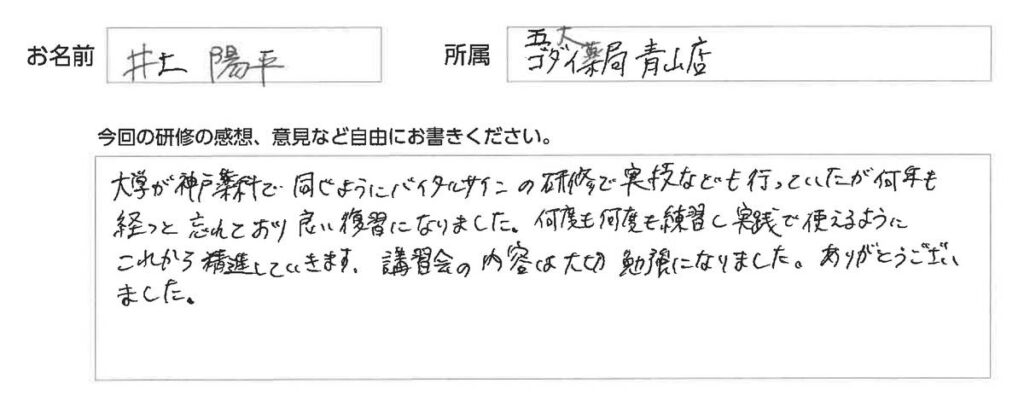 お名前 井上 陽平
所属 五大
ゴダイ薬局 青山店
今回の研修の感想、意見など自由にお書きください。
大学が神戸薬科で 同じようにバイタルサインの研修で実技なども行っていたが何年も
経つと忘れており 良い復習になりました。何度も何度も練習し実践で使えるように
これから精進していきます。講習会の内容は大切 勉強になりました。ありがとうござい
ました。